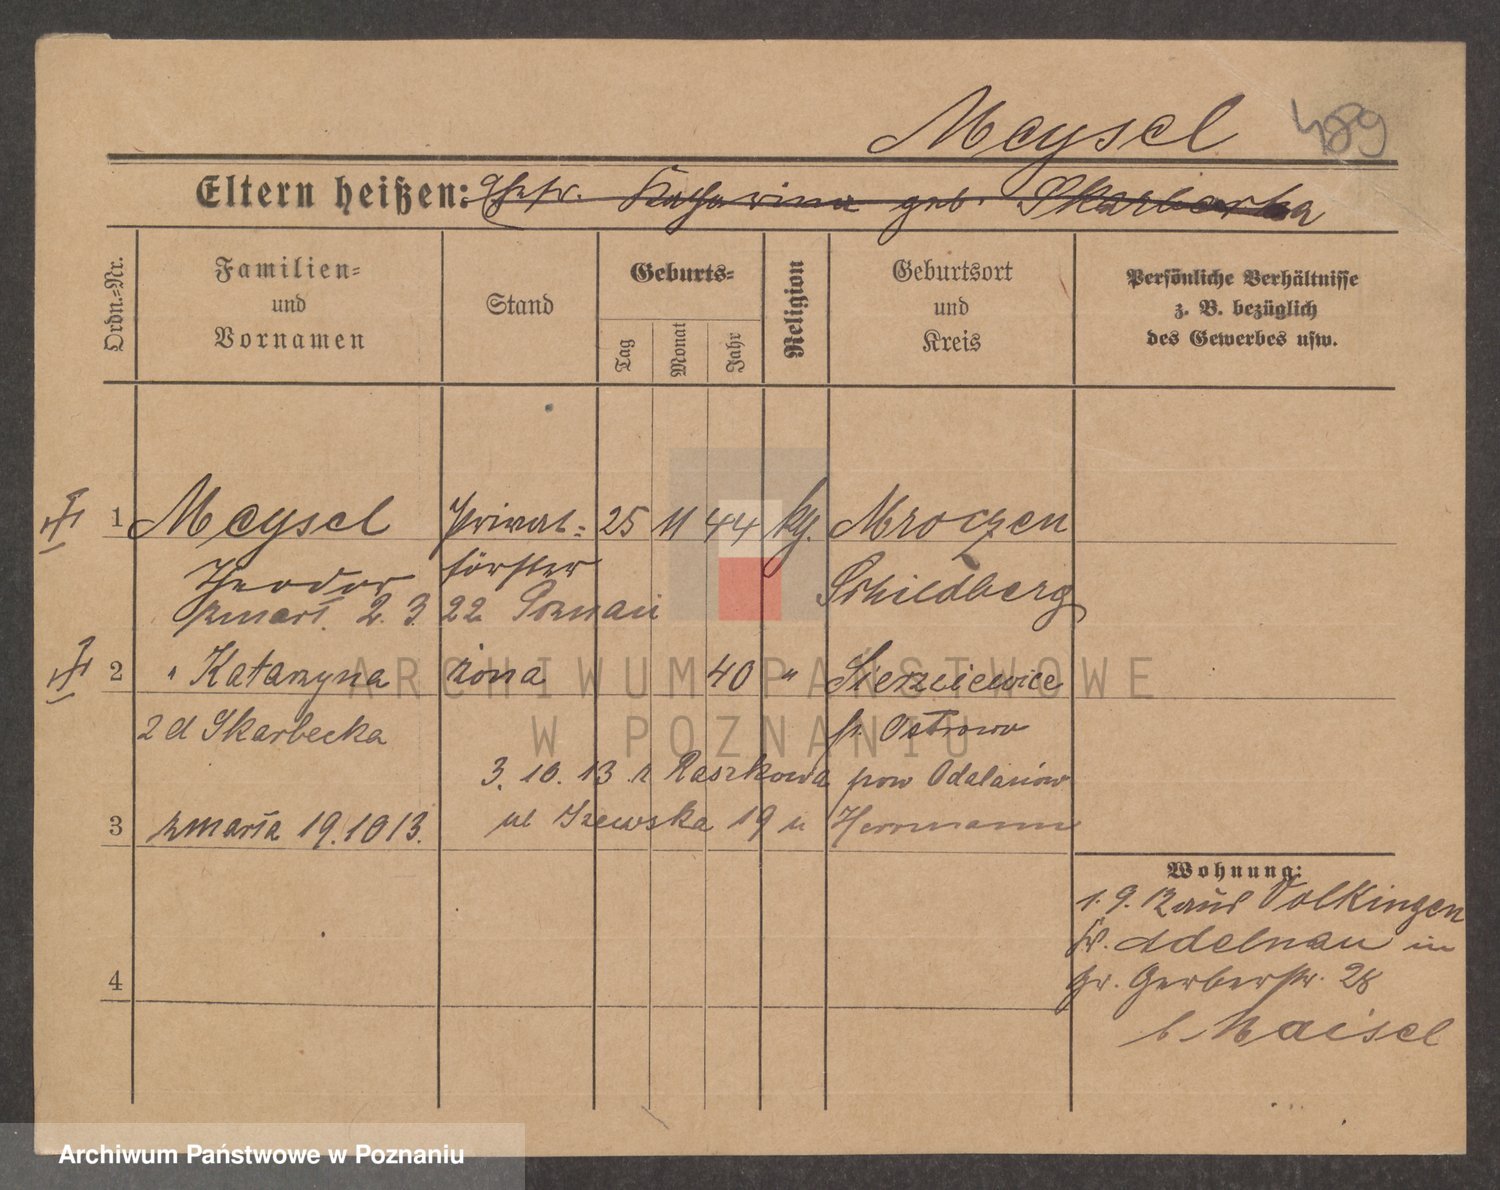 Meysel 489
Eltern heißen: Ehefr. Katharina geb. Skarbecka
Ordn.-Nr.
Familien-
und
Vornamen
Stand
Geburts-
Tag
Monat
Jahr
Religion
Geburtsort
und
Kreis
Persönliche Verhältnisse
z. B. bezüglich
des Gewerbes usw.
1 Meysel Privat- 25 11 44 kg. Mroczen
Theodor förster Schildberg
zmarł. 2. 3. 22 Poznań
2 " Katarzyna żona 40 "
2 d Skarbecka kr. Ostrowo
3. 10. 13 z Raszkowa pow Odalanów
3 zmarła 19.10 13. ul 19 u Herrmann
4
Wohnung:
1. 9. 12 aus Volkingen
kr. Adelnau in
Gr. Gerberstr. 28
b. Maisel
ARCHIWUM PAŃSTWOWE
W POZNANIU
Archiwum Państwowe w Poznaniu